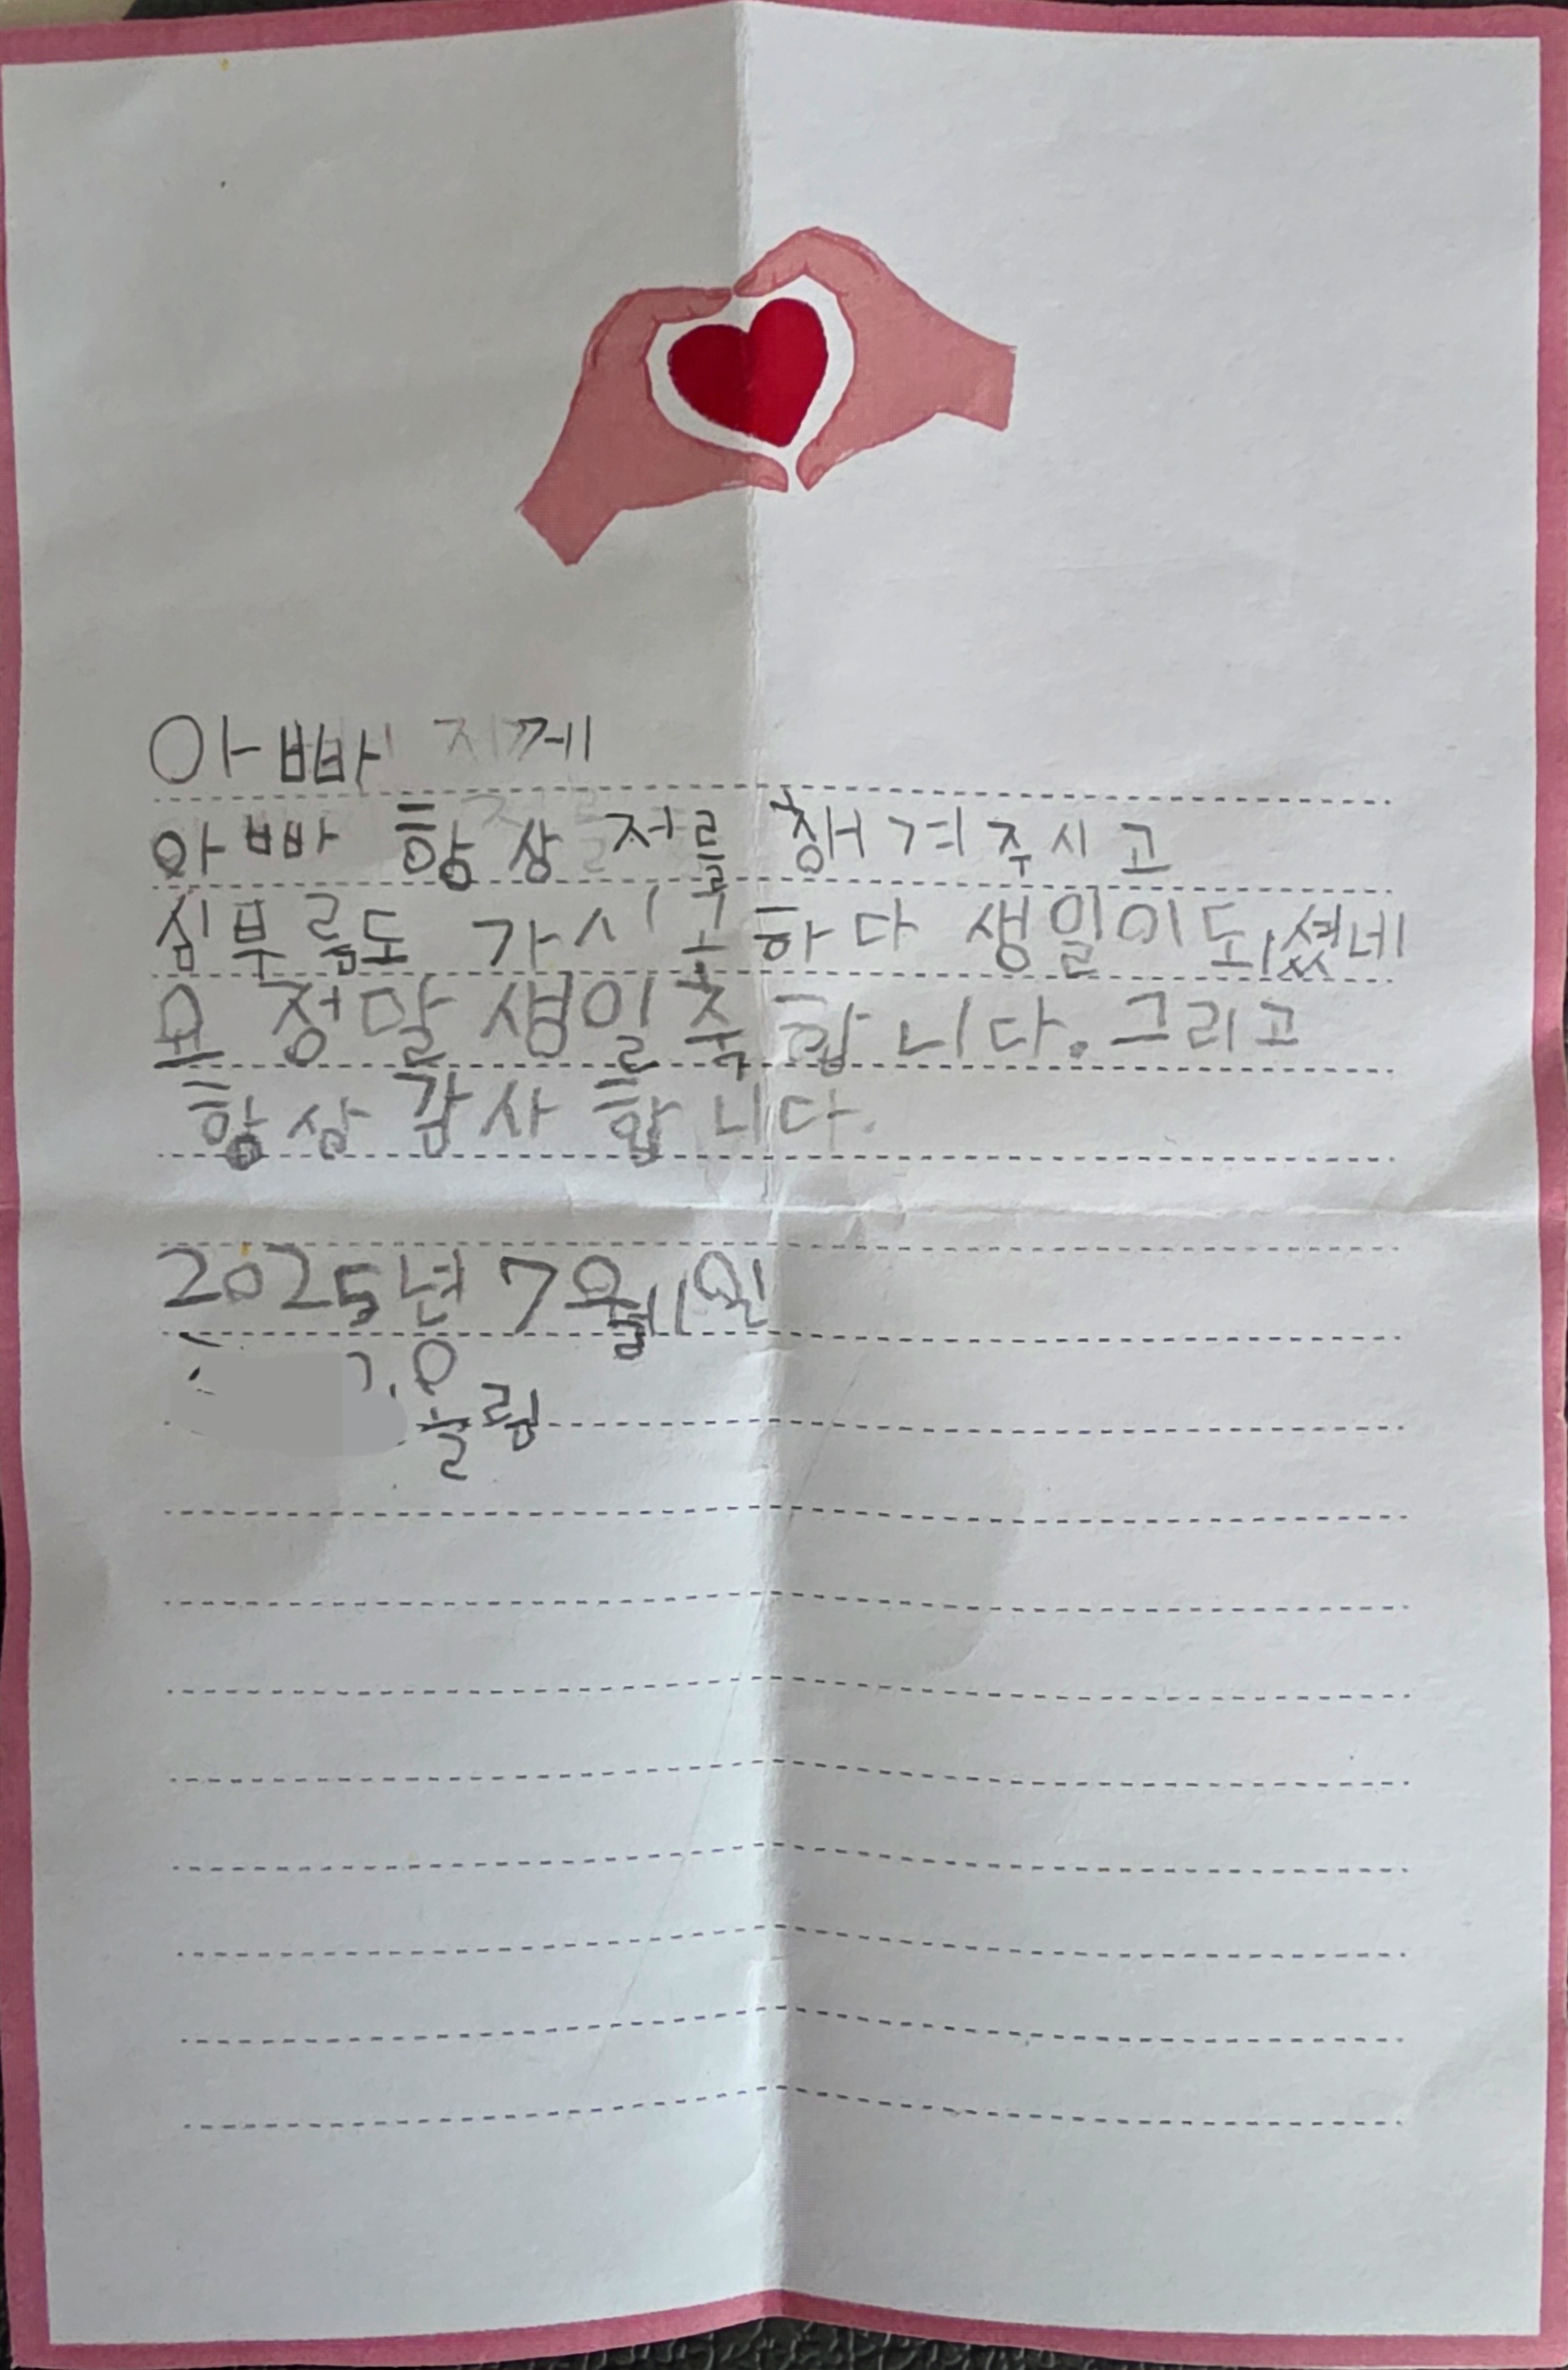 아빠께
아빠 항상 저를 챙겨주시고
심부름도 가시고 하다 생일이 되셨네
요 정말 생일 축합니다. 그리고
항상 감사 합니다.
2025년 7월 11일
올림